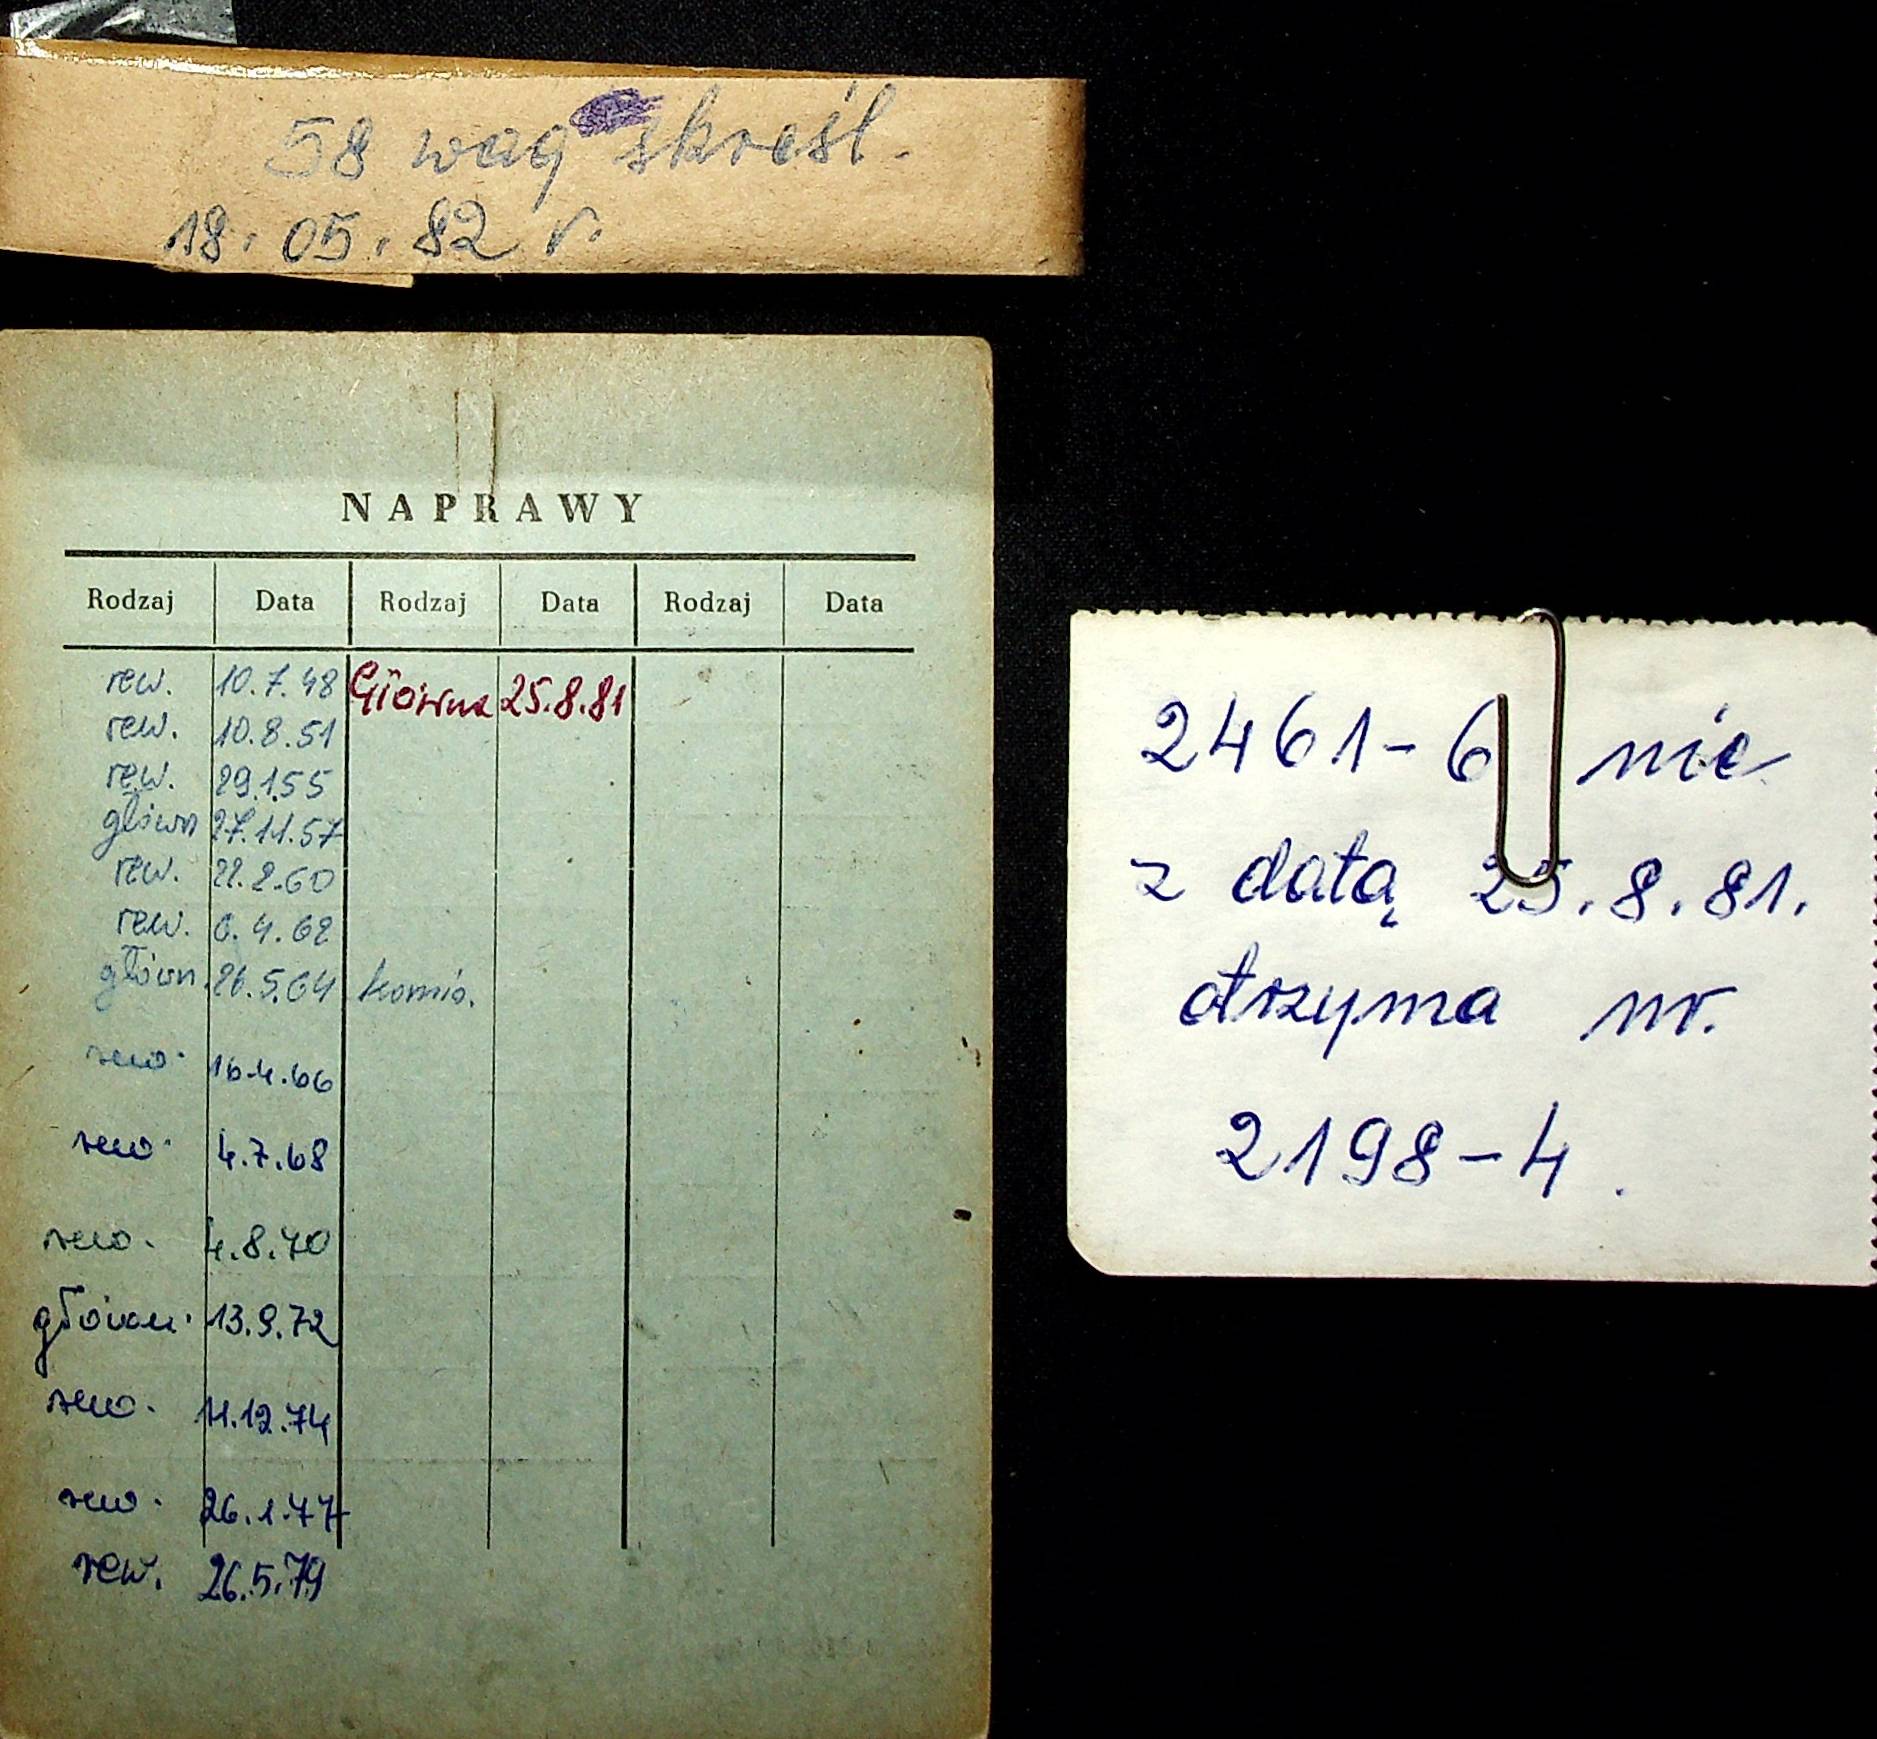 58 wag skreśl.
18.05.82 r.
NAPRAWY
Rodzaj Data Rodzaj Data Rodzaj Data
rew. 10.7.48 Główna 25.8.81
rew. 10.8.51
rew. 29.1.55
główn 27.11.57
rew. 22.2.60
rew. 6.4.62
główn. 26.5.64
rew. 16.4.66
rew. 4.7.68
rew. 4.8.70
główn. 13.9.72
rew. 11.12.74
rew. 26.1.77
rew. 26.5.79
2461-6 nie
z datą 25.8.81.
otrzyma nr.
2198-4.